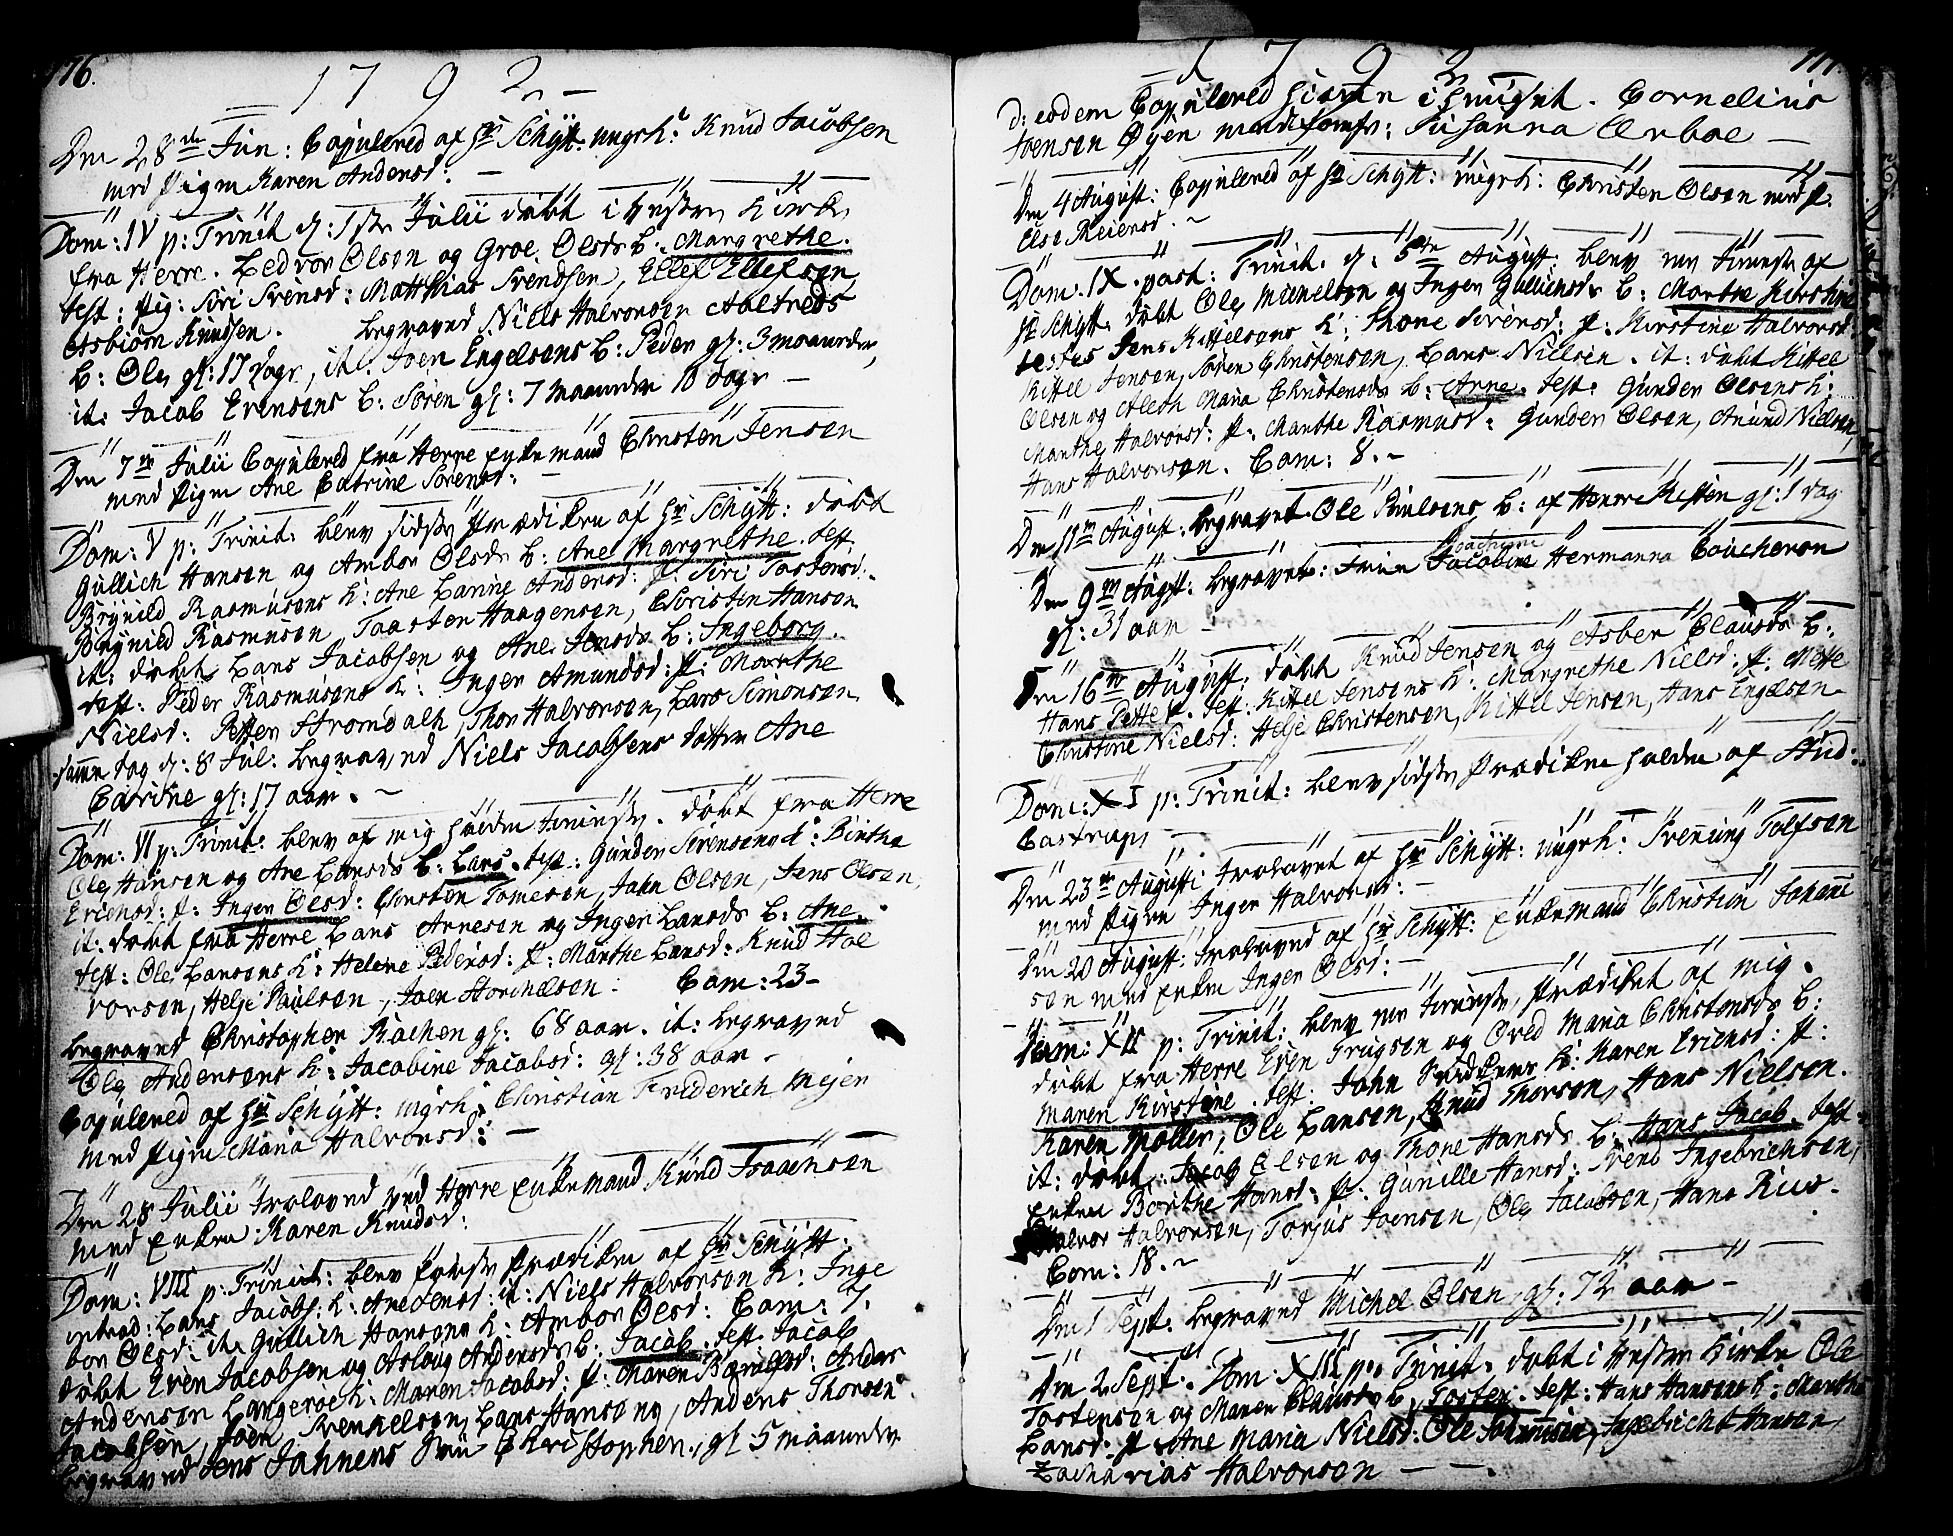 176.
1792 –
Den 28de Jun: Copulered af Hr Schÿtt: ungk: Knud Jacobsen
med Pigen Karen Andersd: –
Dom: IV p: Trinit d: 1ste Julii døbt i Kirke
fra Herre. Ledvor Olsen og Groe Olsds b: Margrethe.
test: Pig: Siri Svensd: Matthias Svendsen, Ellef Ellefsen
Asbiörn Knudsen. begraved Niels Halvorsen
b: Ole gl: 17 dage, it: Joen Engelsens b: Peder gl: 3 maaneder,
it: Jacob Ericsens b: Sören gl: 7 maaneder 10 dage –
Den 7de Julii Copulered fra Herre Enkemand Christen Jensen
med Pigen Ane Catrine Sörensd: –
Dom: V p: Trinit: blev sidste Prædiken af Hr Schÿtt: døbt
Gullich Hansen og Ambor Olsds b: Ane Margrethe. test.
Brÿnild Rasmusens K: Ane Larine Andersd: P: Siri Tostensd:
Brÿnild Rasmusen, Taarsten Haagensen, Christen Hansen
it: døbt Lars Jacobsen og Ane Jensds b: Ingeborg.
test: Peder Rasmusens K: Inger Amundsd: P: Marthe
Nielsd: Petter Stromdalh, Thor Halvorsen, Lars Simonsen
samme dag d: 8 Jul: begraved Niels Jacobsens datter Ane
Carine gl: 17 aar. –
Dom: VI p: Trinit: blev af mig holden tieneste. døbt fra Herre
Ole Hansen og Ane Larsds b: Lars. test: Gunder Sörensens K: Birthe
Ericsd: P: Inger Olsd: Christen Tomesen, John Olsen, Jens Olsen,
it: døbt fra Herre Lars Arnesen og Inger Larsds b: Ane.
test: Ole Larsens K: Helene Pedersd: P: Marthe Larsd: Knud Hal
vorsen, Helje Paulsen, Joen Com: 23–
begraved Christopher Rachen gl: 68 aar. it: begraved
Ole Andersens K: Jacobine Jacobsd: gl: 38 aar –
Copulered af Hr Schÿtt: ungk: Christian Friderich Mejer
med Pigen Maria Halvorsd: –
Den 28 Julii trolaved ved Herre Enkemand Knud Isaachsen
med Enken Karen Knudsd:
Dom: VIII p: Trinit: blev første Prædiken af Hr Schÿtt:
introd: Lars Jacobs: K: Ane Jensd: it: Niels Halvorsen K: Inge
bor Olsd: it: Gullich Hansens K: Ambor Olsd: Com: 7.
døbt Even Jacobsen og Asloug Andersds b: Jacob. test. Jacob
Andersen Langeroe K: Maren Jacobsd: P: Maren Andersd: Anders
Jacobsen, Joen Svenkelsen, Lars Hansen, Anders Thorsen
begraved Jens Jahnsens Christopher, gl: 5 maaneder
1792
177.
D: eodem Copulered hiemme i huuset. Cornelius
Joensen Øÿen med Jomfr: Susanna Ærboe –
Den 4 August: Copulered af Hr Schÿtt: ungk: Christen Olsen med P:
Else Reiersd. ~
Dom. IX. post: Trinit. d: 5te August. blev tieneste af
Hr Schÿtt. døbt Ole Michelsen og Inger Gulliksds b: Marthe Kirstine
testes Jens Kittelsens K: Thone Sörensd: P: Kirstine Halvorsd:
Kittel Jensen, Sören Christensen, Lars Nielsen. it: døbt Kittel
Olsen og Aleth Maria Christensds b: Arne. test: Gunder Olsens K:
Marthe Halvorsd: P: Marthe Rasmusd: Gunder Olsen, Anund Nielsen,
Hans Halvorsen. Com: 8. ~
Den 11te August. begravet Ole Paulsens b: af Herre gl: 1 dag
Den 9de August: begravet: Jacobine Joachime Hermanna Coucheron
gl: 31 aar –
Den 16de August. døbt Knud Jensen og Asber Clausds b:
Hans Petter. test: Kittel Jensens K: Margrethe Nielsd: P: Mette
Christine Nielsd: Helje Christensen, Kittel Jensen, Hans Engelsen
Dom: XI p: Trinit: blev sidste Prædiken holden af Stud:
Castrup –
Den 23de August: trolovet af Hr Schÿtt: ungk: Svenning Tolfsen
med Pigen Inger Halvorsd: –
Den 20 August: trolaved af Hr Schÿtt: Enkemand Christian Johanne
sen med Enken Inger Olsd: –
Dom: XII p: Trinit: blev tieneste, Prædiket af mig.
døbt fra Herre Even Trugsen og Øvel Maria Christensds b:
Maren Kirstine. test. John K: Karen Ericsd: P:
Karen Møller, Ole Larsen, Knud Thorsen, Hans Nielsen.
it: døbt. Jacob Olsen og Thone Hansds b: Hans Jacob. test
Enken Borthe Hansd: P: Gunille Hansd: Svend Ingebrichsen,
Halvor Halvorsen, Torjus Joensen, Ole Jacobsen, Hans Riis.
Com: 18. ~
Den 1 Sept: begraved Michel Olsen, gl: 72 aar –
Den 2 Sept. Dom: XIII p: Trinit: døbt i Kirke Ole
Tostensen og Maren b: Tosten. test: Hans Hansens K: Marthe
Larsd: P: Ane Maria Nielsd: Ole Ingebricht Hansen,
Zacharias Halvorsen – –.